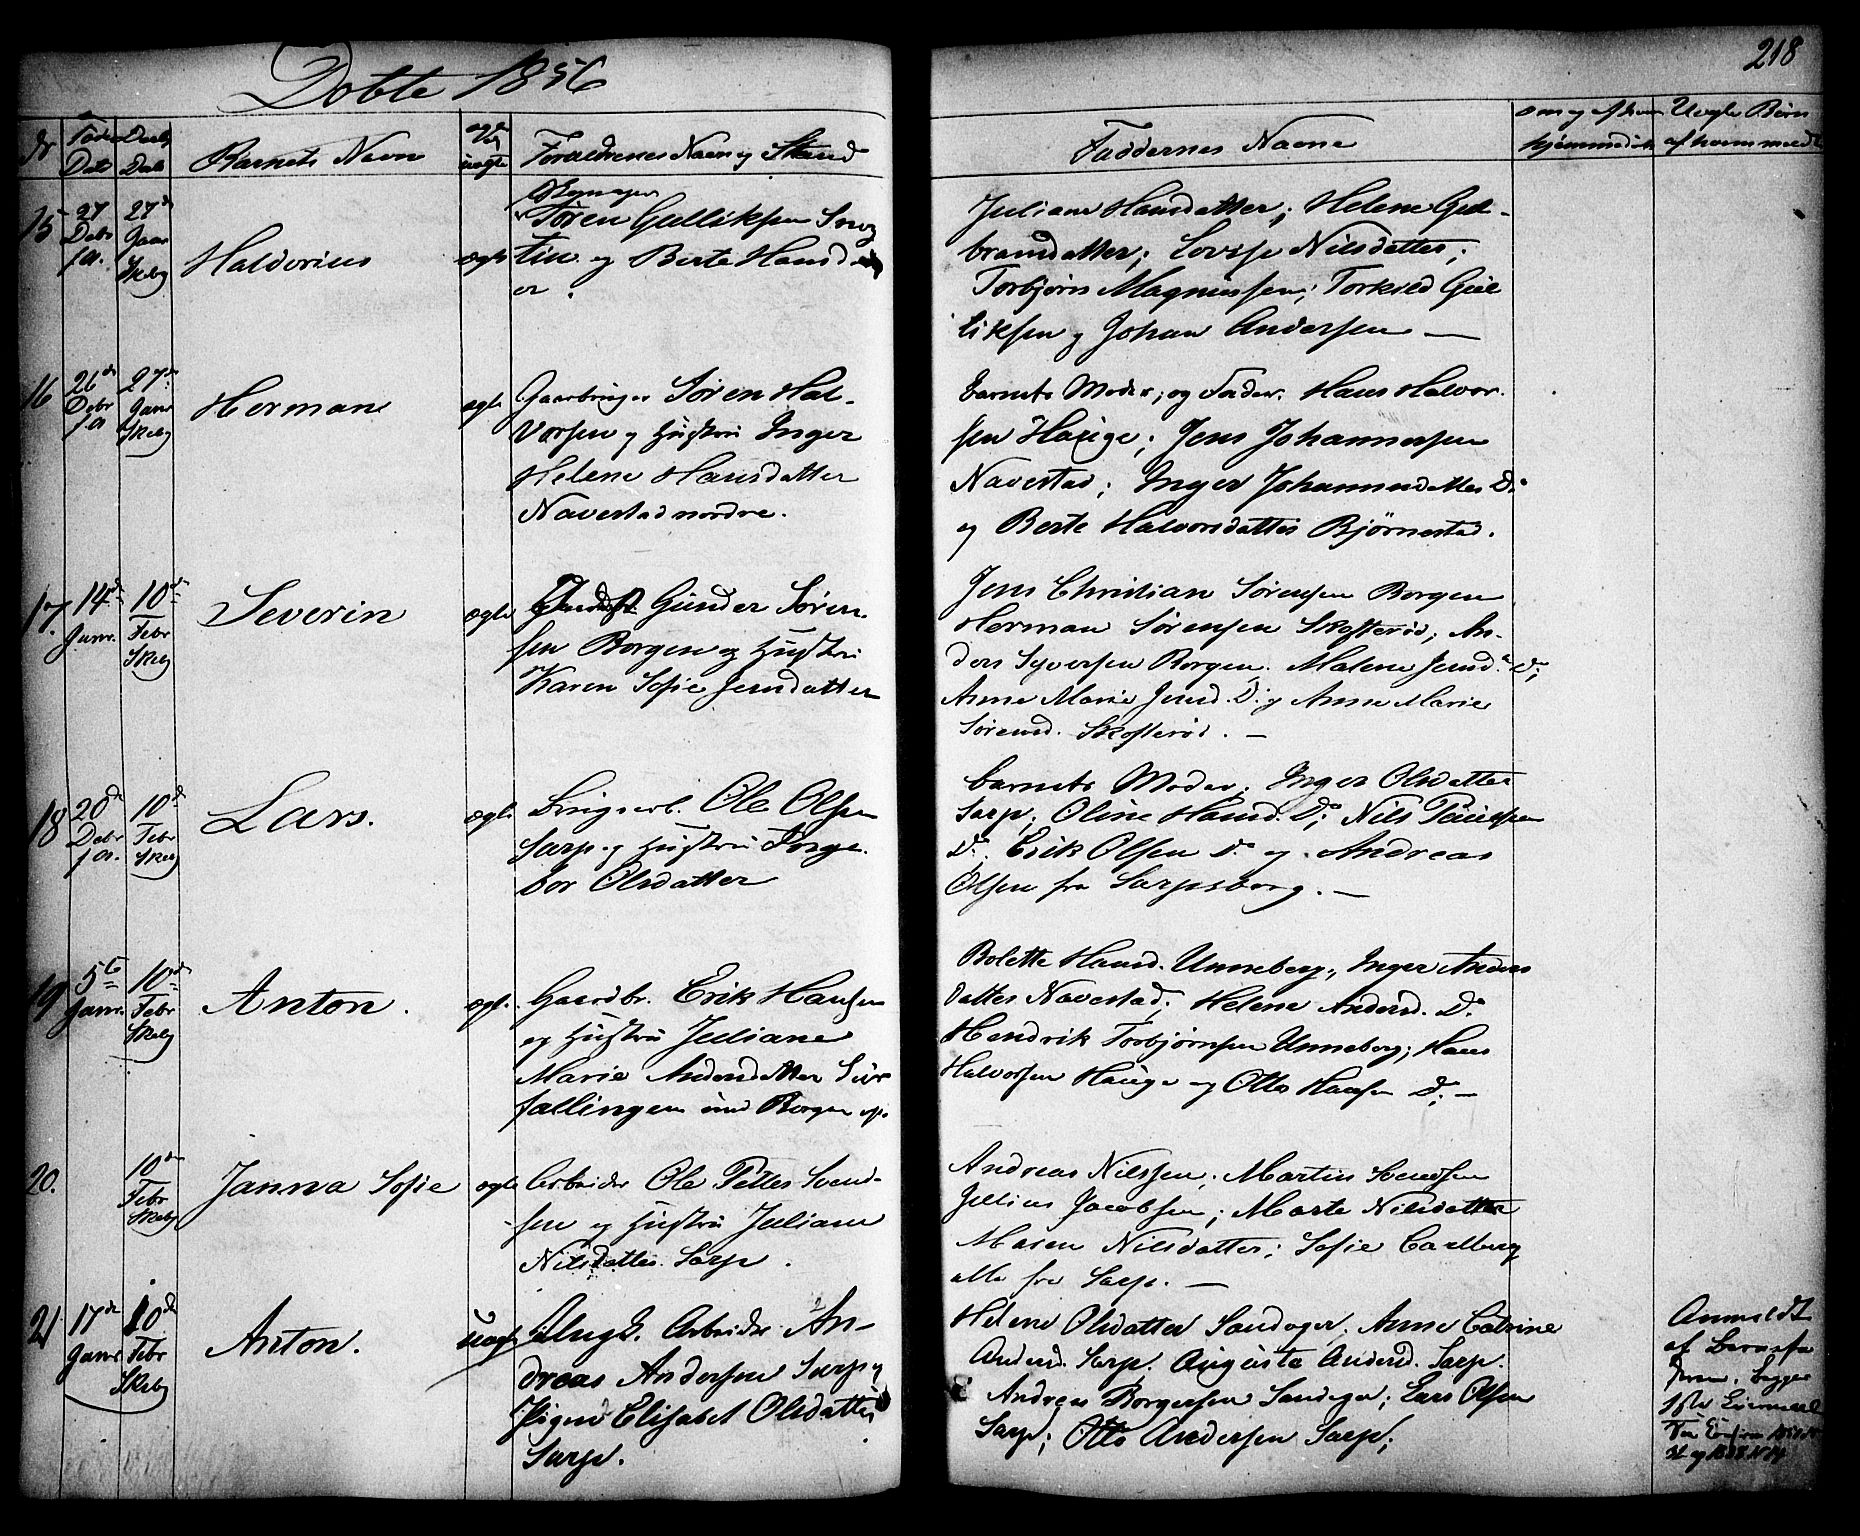 218
Døbte 1856
Nr
Føds
Dato
Daabs
Dato
Barnets Navn
ægte
v
uægte
Forældrenes Navn og Stand
Faddernes Navne
om og af hvem
hjemmedøbt
Uægte Børn
af hvem meldt
15
27
Debr
f.A.
27de
Janr
Skeby
Halvorius
ægte
Søren Gulliksen
tin og Berte Hansdatt
er.
Juliane Hansdatter; Helene Gul-
bransdatter; Lovise Nilsdatter;
Torbjørn Magnussen; Torkild Gul
liksen og Johan Andersen —
16
26de
Debr
f.A
27de
Janr
Skeby
Herman
ægte
Gaardbruger Søren Hal-
vorsen og Hustru Inger
Helene Hansdatter
Navestad nordre.
barnets Moder, og Fader. Hans Halvor-
sen Hauge; Jens Johannessen
Navestad; Inger Johannesdatter Do
og Berte Halvorsdatter Bjørnestad.
17.
14de
Janr.
10de
Febr
Skeby
Severin
ægte
Gunder Søren-
sen Borgen og Hustru
Karen Sofie Jensdatter
Jens Christian Sørensen Borgen
Herman Sørensen Skofterød; An-
ders Syversen Borgen. Malene Jensd. Do;
Anne Marie Jensd. Do; og Anne Marie
Sørensd. Skofterød. —
18
20de
Debr
f.A.
10de
Febr
Skeby
Lars.
ægte
Brugsarb. Ole Olsen
Sarp og Hustru Torge-
bor Olsdatter
barnets Moder; Inger Olsdatter
Sarp; Oline Hansd. Do; Nils Paulsen
Do; Erik Olsen Do og Andreas
Olsen fra Sarpsborg. —
19
5te
Janr.
10de
Febr
Skeby
Anton.
ægte
Gaardbr. Erik Hansen
og Hustru Juliane
Marie Andersdatter
fallingen und Borgen
Bolette Hansd. Unneberg; Inger Anders
datter Navestad; Helene Andersd. Do
Hendrik Torbjørnsen Unneberg; Hans
Halvorsen Hauge og Otto Hansen Do. —
20.
10de
Febr
Skeby
Janna Sofie
ægte
Arbeider Ole Petter Svend-
sen og Hustru Juliane
Nilsdatter Sarp.
Andreas Nilssen; Martin Svendsen
Julius Jacobsen; Marte Nilsdatter
Maren Nilsdatter; Sofie Carlberg
alle fra Sarp. —
21
17de
Janr
10de
Febr
Skeby
Anton.
uægte
Ungk. Arbeider An-
dreas Andersen Sarp og
Pigen Elisabet Olsdatter
Sarp.
Helene Olsdatter Sandager; Anne Catrine
Andersd. Sarp. Auguste Andersd. Sarp.
Andreas Borgersen Sandager; Lars Olsen
Sarp; Otto Andersen Sarp;
Anmeldt
af Barnefa
deren.